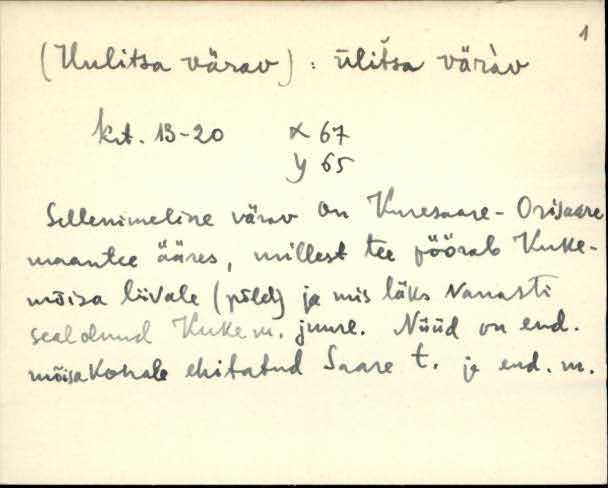 1
(Uulitsa värav) : ūlĭt̆sa väràv
krt. 13-20 x 67
y 65
Sellenimeline värav on Kuresaare - Orisaare
maantee ääres, millest tee pöörab Kuke-
mõisa liivale (põld) ja mis läks vanasti
sealolnud Kuke m. juure. Nüüd on end.
mõisakohale ehitatud Saare t. ja end. m.